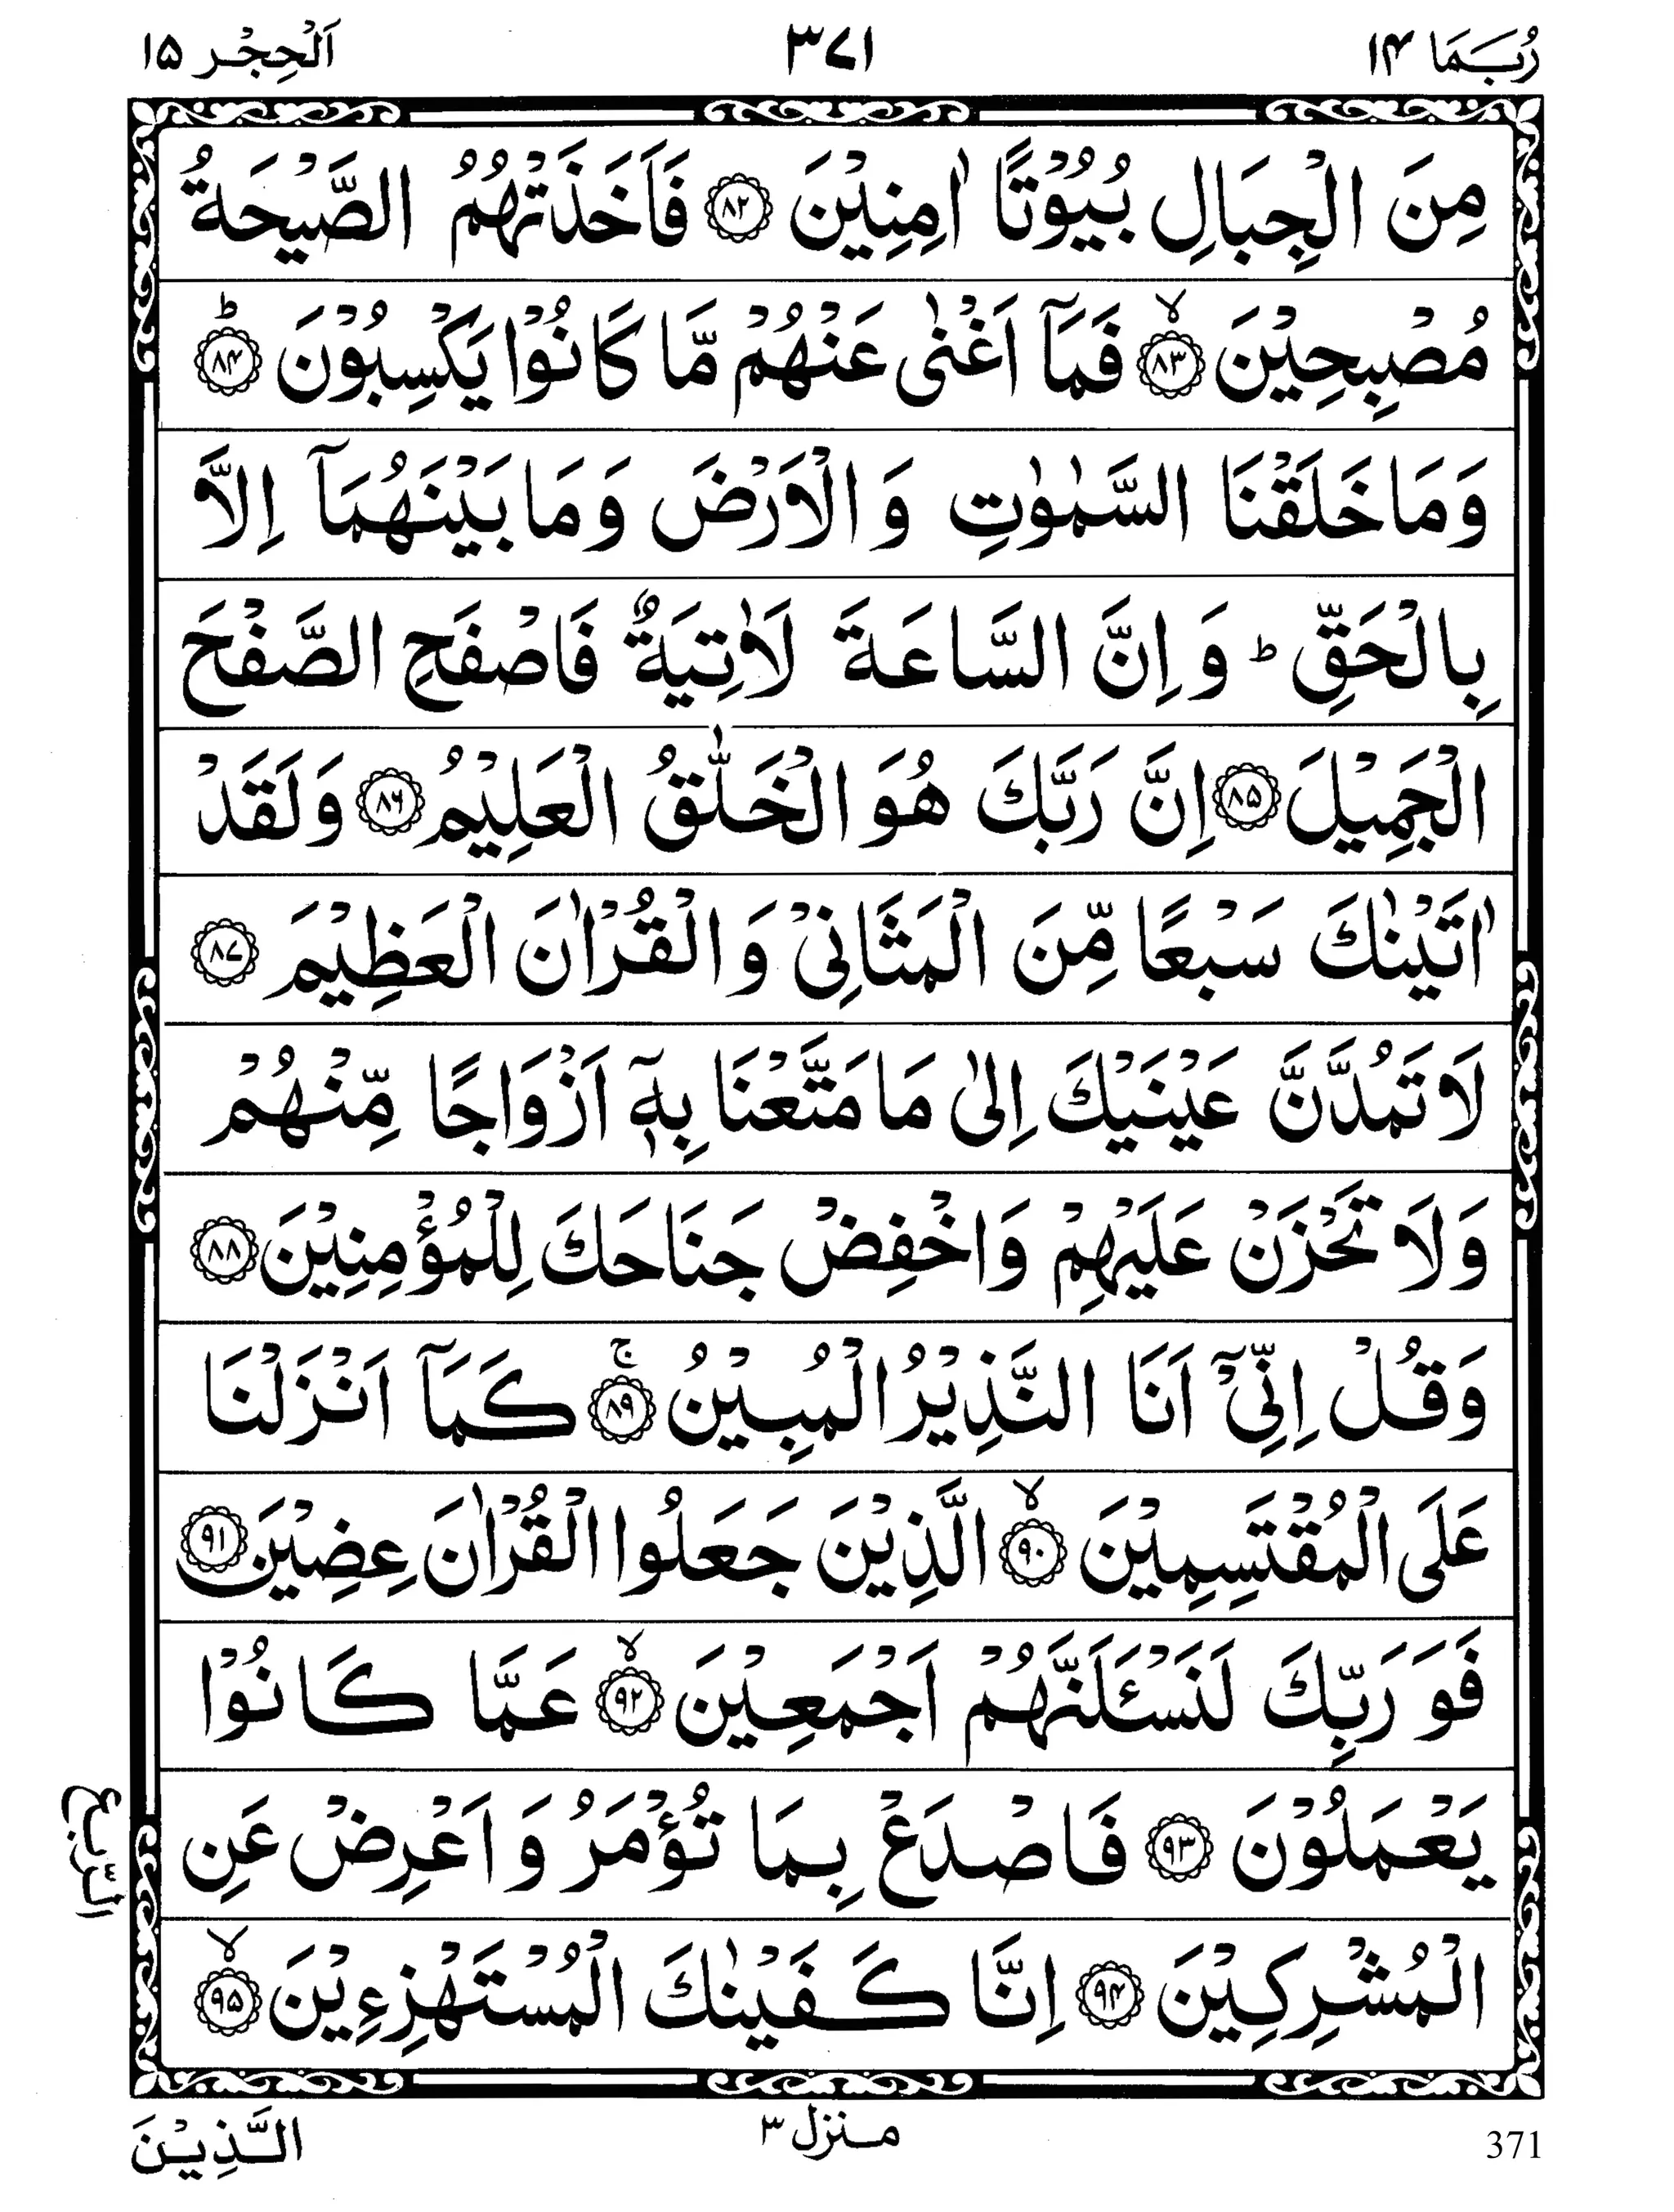 رُبَمَا ١٤
٣٧١
اَلْحِجْر ١٥
مِنَ الْجِبَالِ بُيُوْتًا اٰمِنِيْنَ ﴿٨٢﴾ فَاَخَذَتْهُمُ الصَّيْحَةُ
مُصْبِحِيْنَ ﴿٨٣﴾ۙ فَمَآ اَغْنٰى عَنْهُمْ مَّا كَانُوْا يَكْسِبُوْنَ ﴿٨٤﴾ؕ
وَمَا خَلَقْنَا السَّمٰوٰتِ وَالْاَرْضَ وَمَا بَيْنَهُمَآ اِلَّا
بِالْحَقِّ ؕ وَاِنَّ السَّاعَةَ لَاٰتِيَةٌ فَاصْفَحِ الصَّفْحَ
الْجَمِيْلَ ﴿٨٥﴾ اِنَّ رَبَّكَ هُوَ الْخَلّٰقُ الْعَلِيْمُ ﴿٨٦﴾ وَلَقَدْ
اٰتَيْنٰكَ سَبْعًا مِّنَ الْمَثَانِيْ وَالْقُرْاٰنَ الْعَظِيْمَ ﴿٨٧﴾
لَا تَمُدَّنَّ عَيْنَيْكَ اِلٰى مَا مَتَّعْنَا بِهٖٓ اَزْوَاجًا مِّنْهُمْ
وَلَا تَحْزَنْ عَلَيْهِمْ وَاخْفِضْ جَنَاحَكَ لِلْمُؤْمِنِيْنَ ﴿٨٨﴾
وَقُلْ اِنِّيْٓ اَنَا النَّذِيْرُ الْمُبِيْنُ ﴿٨٩﴾ۚ كَمَآ اَنْزَلْنَا
عَلَى الْمُقْتَسِمِيْنَ ﴿٩٠﴾ۙ الَّذِيْنَ جَعَلُوا الْقُرْاٰنَ عِضِيْنَ ﴿٩١﴾
فَوَرَبِّكَ لَنَسْـَٔلَنَّهُمْ اَجْمَعِيْنَ ﴿٩٢﴾ۙ عَمَّا كَانُوْا
يَعْمَلُوْنَ ﴿٩٣﴾ فَاصْدَعْ بِمَا تُؤْمَرُ وَاَعْرِضْ عَنِ
الْمُشْرِكِيْنَ ﴿٩٤﴾ اِنَّا كَفَيْنٰكَ الْمُسْتَهْزِءِيْنَ ﴿٩٥﴾ۙ
الرّبع
الَّذِيْنَ
منزل ٣
371